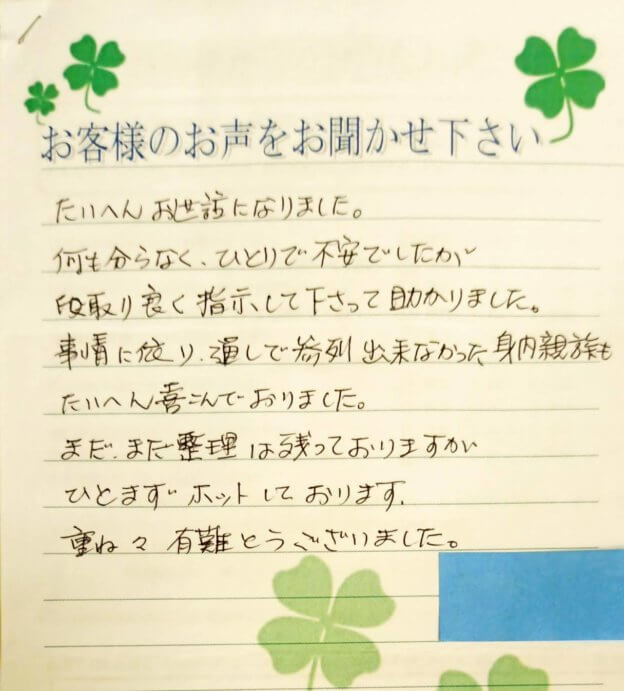 お客様のお声をお聞かせ下さい
たいへんお世話になりました。
何も分らなく、ひとりで不安でしたが
段取り良く指示して下さって助かりました。
事情に依り、通しで参列出来なかった身内親族も
たいへん喜こんでおりました。
まだ、まだ整理は残っておりますが
ひとまずホットしております、
重ね々有難とうございました。